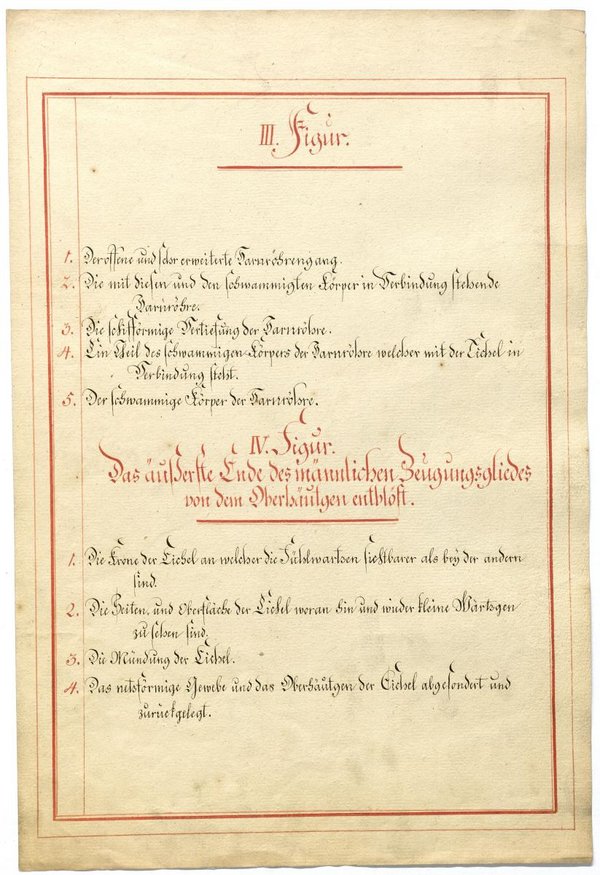 III. Figur.
1. Der offene und sehr erweiterte Harnröhrengang.
2. Die mit diesen und den schwammigten Körper in Verbindung stehende
Harnröhre.
3. Die schifförmige Vertiefung der Harnröhre.
4. Ein Theil des schwammigen Körpers der Harnröhre welcher mit der Eichel in
Verbindung steht.
5. Der schwammige Körper der Harnröhre.
IV. Figur.
Das äußerste Ende des männlichen Zeugungsgliedes
von dem Oberhäutgen entblöst.
1. Die Krone der Eichel an welcher die Fühlwartsen sichtbarer als bey der andern
sind.
2. Die Seiten, und Oberfläche der Eichel woran hin und wieder kleine Wärtsgen
zu sehen sind.
3. Die Mündung der Eichel.
4. Das netsförmige Gewebe und das Oberhäutgen der Eichel abgesondert und
zurückgelegt.